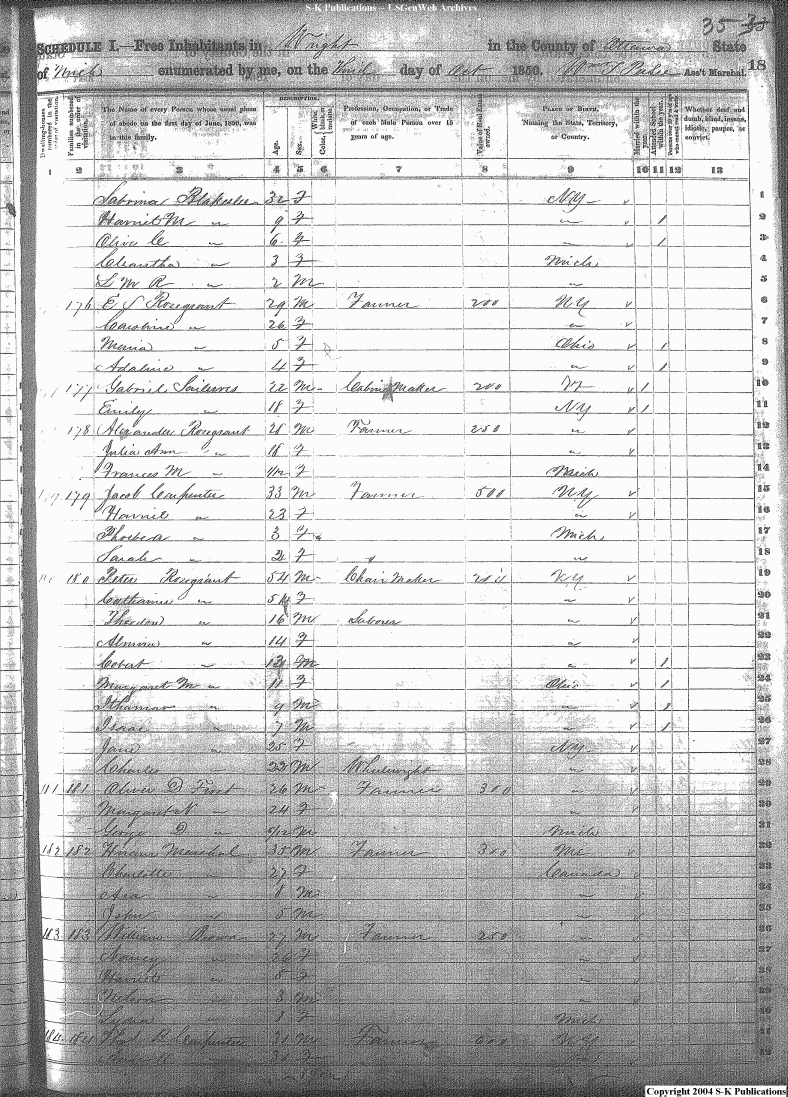 S-K Publications – USGenWeb Archives
35
SCHEDULE I.—Free Inhabitants in Wright in the County of Ottawa State
of Mich enumerated by me, on the day of Oct 1850. Ass't Marshal. 18
DESCRIPTION.
The Name of every Person whose usual place of abode on the first day of June, 1850, was in this family.
Age.
Sex.
Profession, Occupation, or Trade of each Male Person over 15 years of age.
Value of Real Estate owned.
PLACE OF BIRTH, Naming the State, Territory, or Country.
Married within the year.
Attended School within the year.
Whether deaf and dumb, blind, insane, idiotic, pauper, or convict.
1 2 3 4 5 6 7 8 9 10 11 12 13
Sabrina Blakeslee 32 F NY 1
Harriet M " 9 F " 1 2
Olive C " 6 F " 1 3
Cleantha " 3 F Mich 4
L M R " 2 M " 5
176 E S Rosegrant 29 M Farmer 200 NY 6
Caroline " 26 F " 7
Maria " 5 F Ohio 1 8
Adaline " 4 F " 1 9
177 Gabriel 22 M Cabinet Maker 200 Vt 1 10
Emily " 18 F NY 1 11
178 Alexander Rosegrant 28 M Farmer 250 " 12
Julia Ann " 18 F " 13
Frances M " F Mich 14
179 179 Jacob Carpenter 33 M Farmer 500 NY 15
Harriet " 23 F " 16
Phoebe a " 3 F Mich 17
Sarah " 2 F " 18
180 180 Peter Rosegrant 54 M Chair Maker NY 19
Catharine " 51 F " 20
16 M Laborer " 21
Almira " 14 F " 22
" M " 1 23
Margaret M " 11 F Ohio 1 24
Ithamar " 9 M " 1 25
Isaac " 7 M " 1 26
Jane " 25 F NY 27
Charles " 22 M Wheelwright " 28
181 181 Oliver D Frost 26 M Farmer 300 " 29
Margaret N " 24 F " 30
George D " M Mich 31
182 182 Hiram Marshal 35 M Farmer 300 Me 32
Charlotte " 27 F Canada
Asa " 8 M "
John " 5 M "
183 183 William Brown 27 M Farmer 250 "
Nancy " 26 F "
Harriet " 5 F "
Nelson " 3 M "
Lydia " 1 F Mich
184 184 B Carpenter 31 M Farmer 600 NY
30 F
Copyright 2004 S-K Publications